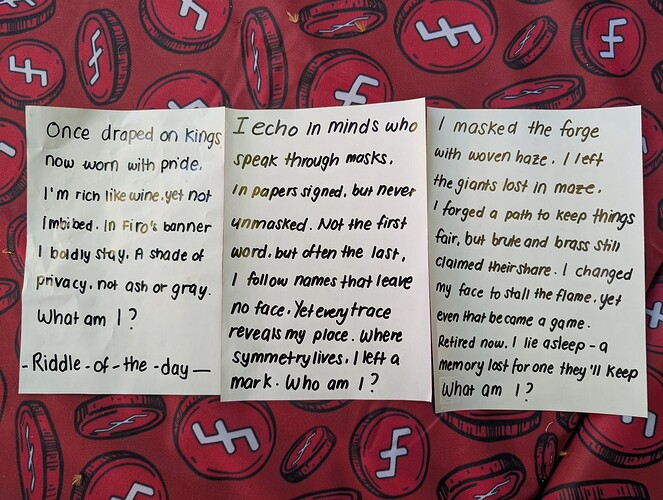 Once draped on kings
now worn with pride.
I'm rich like wine, yet not
Imbibed. In Firo's banner
I boldly stay. A shade of
privacy, not ash or gray.
What am I?
-Riddle-of-the-day-
I echo in minds who
speak through masks.
In papers signed, but never
unmasked. Not the first
word, but often the last,
I follow names that leave
no face. Yet every trace
reveals my place. Where
symmetry lives, I left a
mark. Who am I?
I masked the forge
with woven haze. I left
the giants lost in maze.
I forged a path to keep things
fair, but brute and brass still
claimed their share. I changed
my face to stall the flame, yet
even that became a game.
Retired now, I lie asleep - a
memory lost for one they'll keep
What am I?